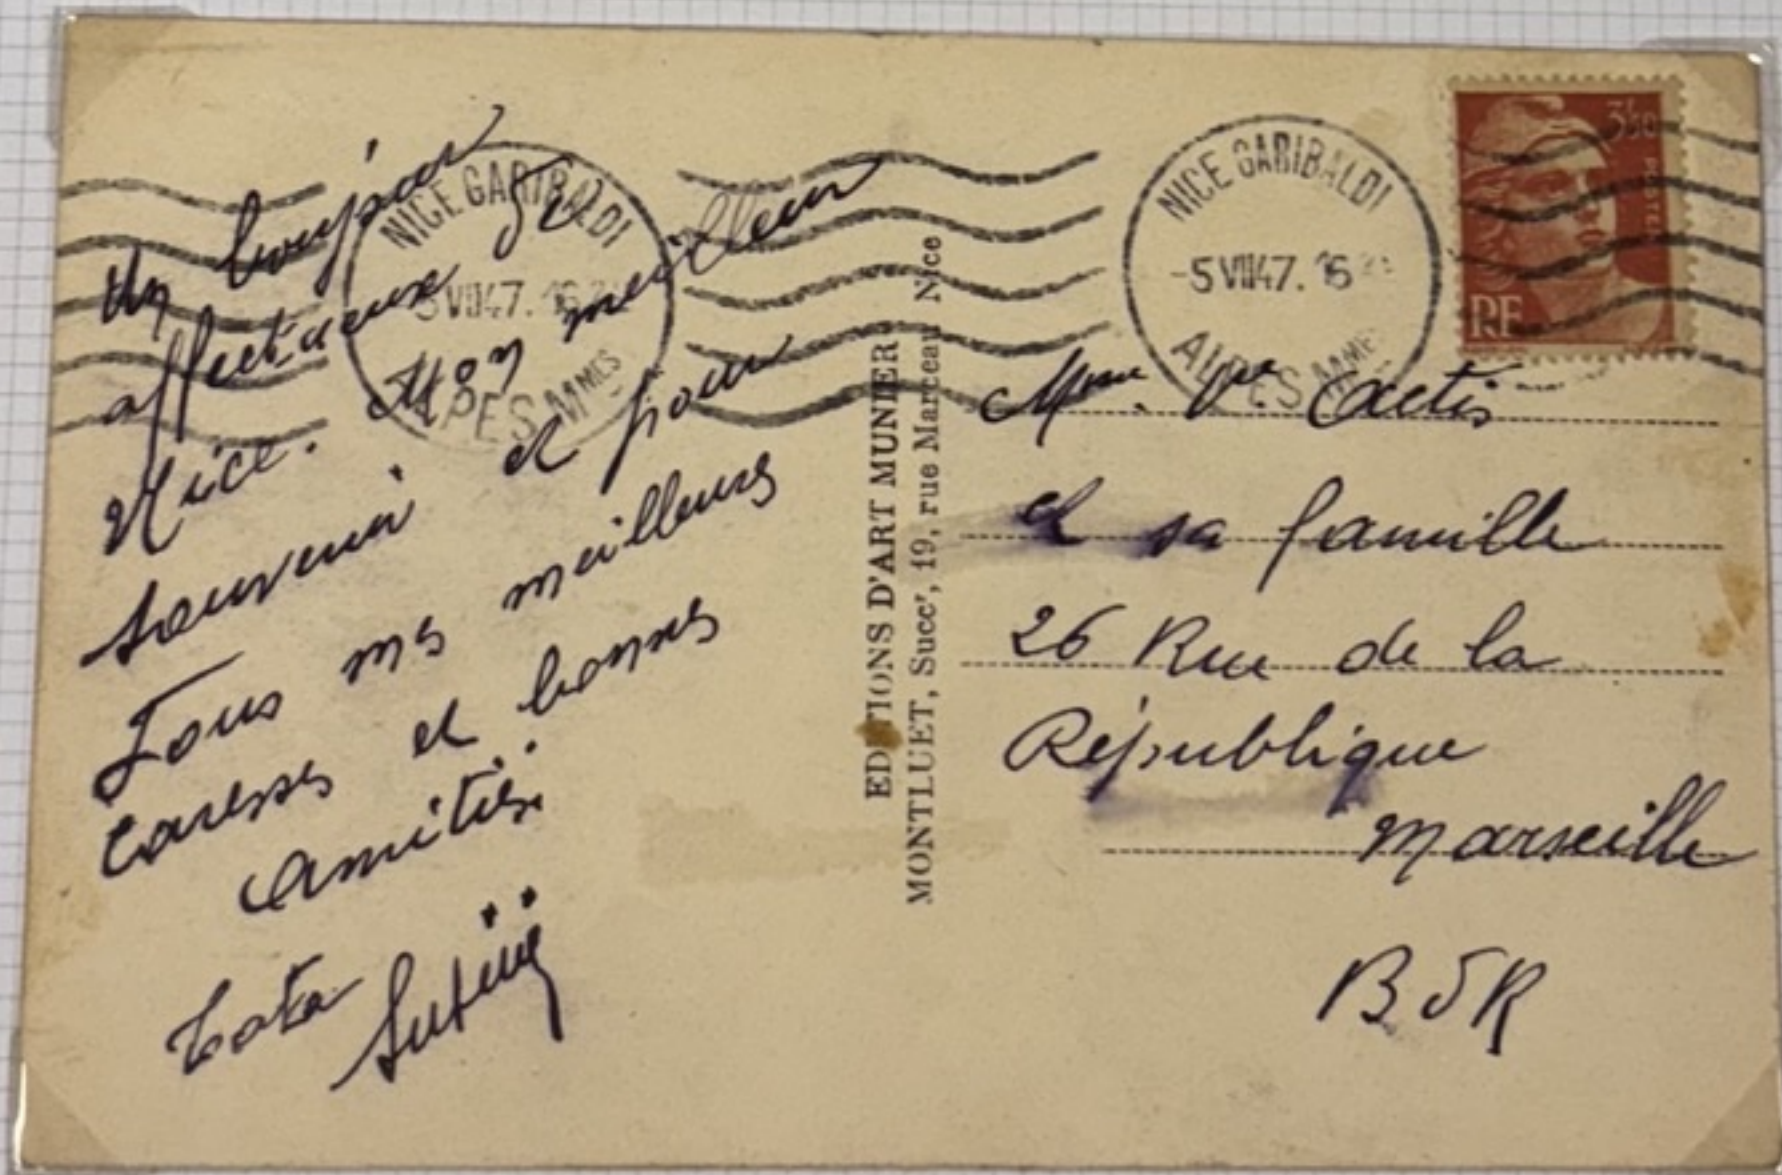 Un bonjour
affectueux de
Nice. Mon meilleur
souvenir et pour
Tous mes meilleurs
caresses et bonnes
amitiés.
Tata
NICE GARIBALDI
5 VII 47. 16
ALPES MMES
EDITIONS D'ART MUNIER
MONTLUET, Succr, 19, rue Marceau Nice
NICE GARIBALDI
-5 VII 47. 16
ALPES MMES
RF
Mme Ve Actis
et sa famille
26 Rue de la
République
Marseille
B d R